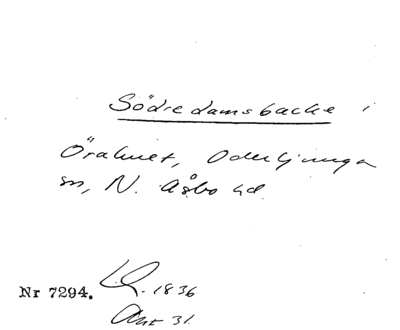 Södredamsbacke i
Örahult, Oderljunga
sn, N. Åsbo hd.
Nr 7294. 1836
31.